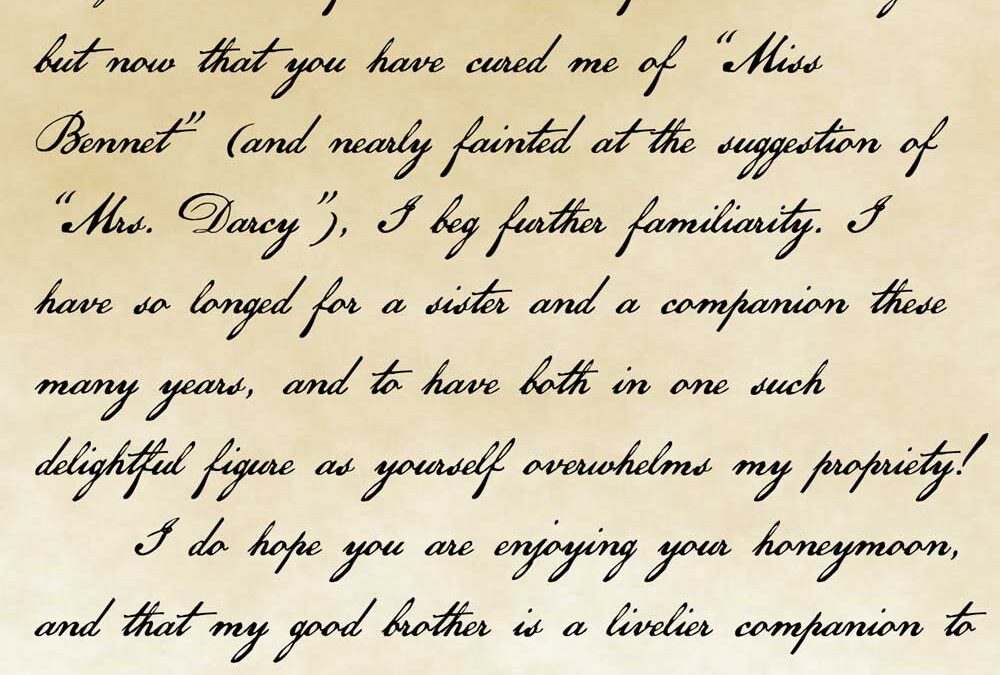 but now that you have cured me of “Miss
Bennet” (and nearly fainted at the suggestion of
“Mrs. Darcy”), I beg further familiarity. I
have so longed for a sister and a companion these
many years, and to have both in one such
delightful figure as yourself overwhelms my propriety!
I do hope you are enjoying your honeymoon,
and that my good brother is a livelier companion to